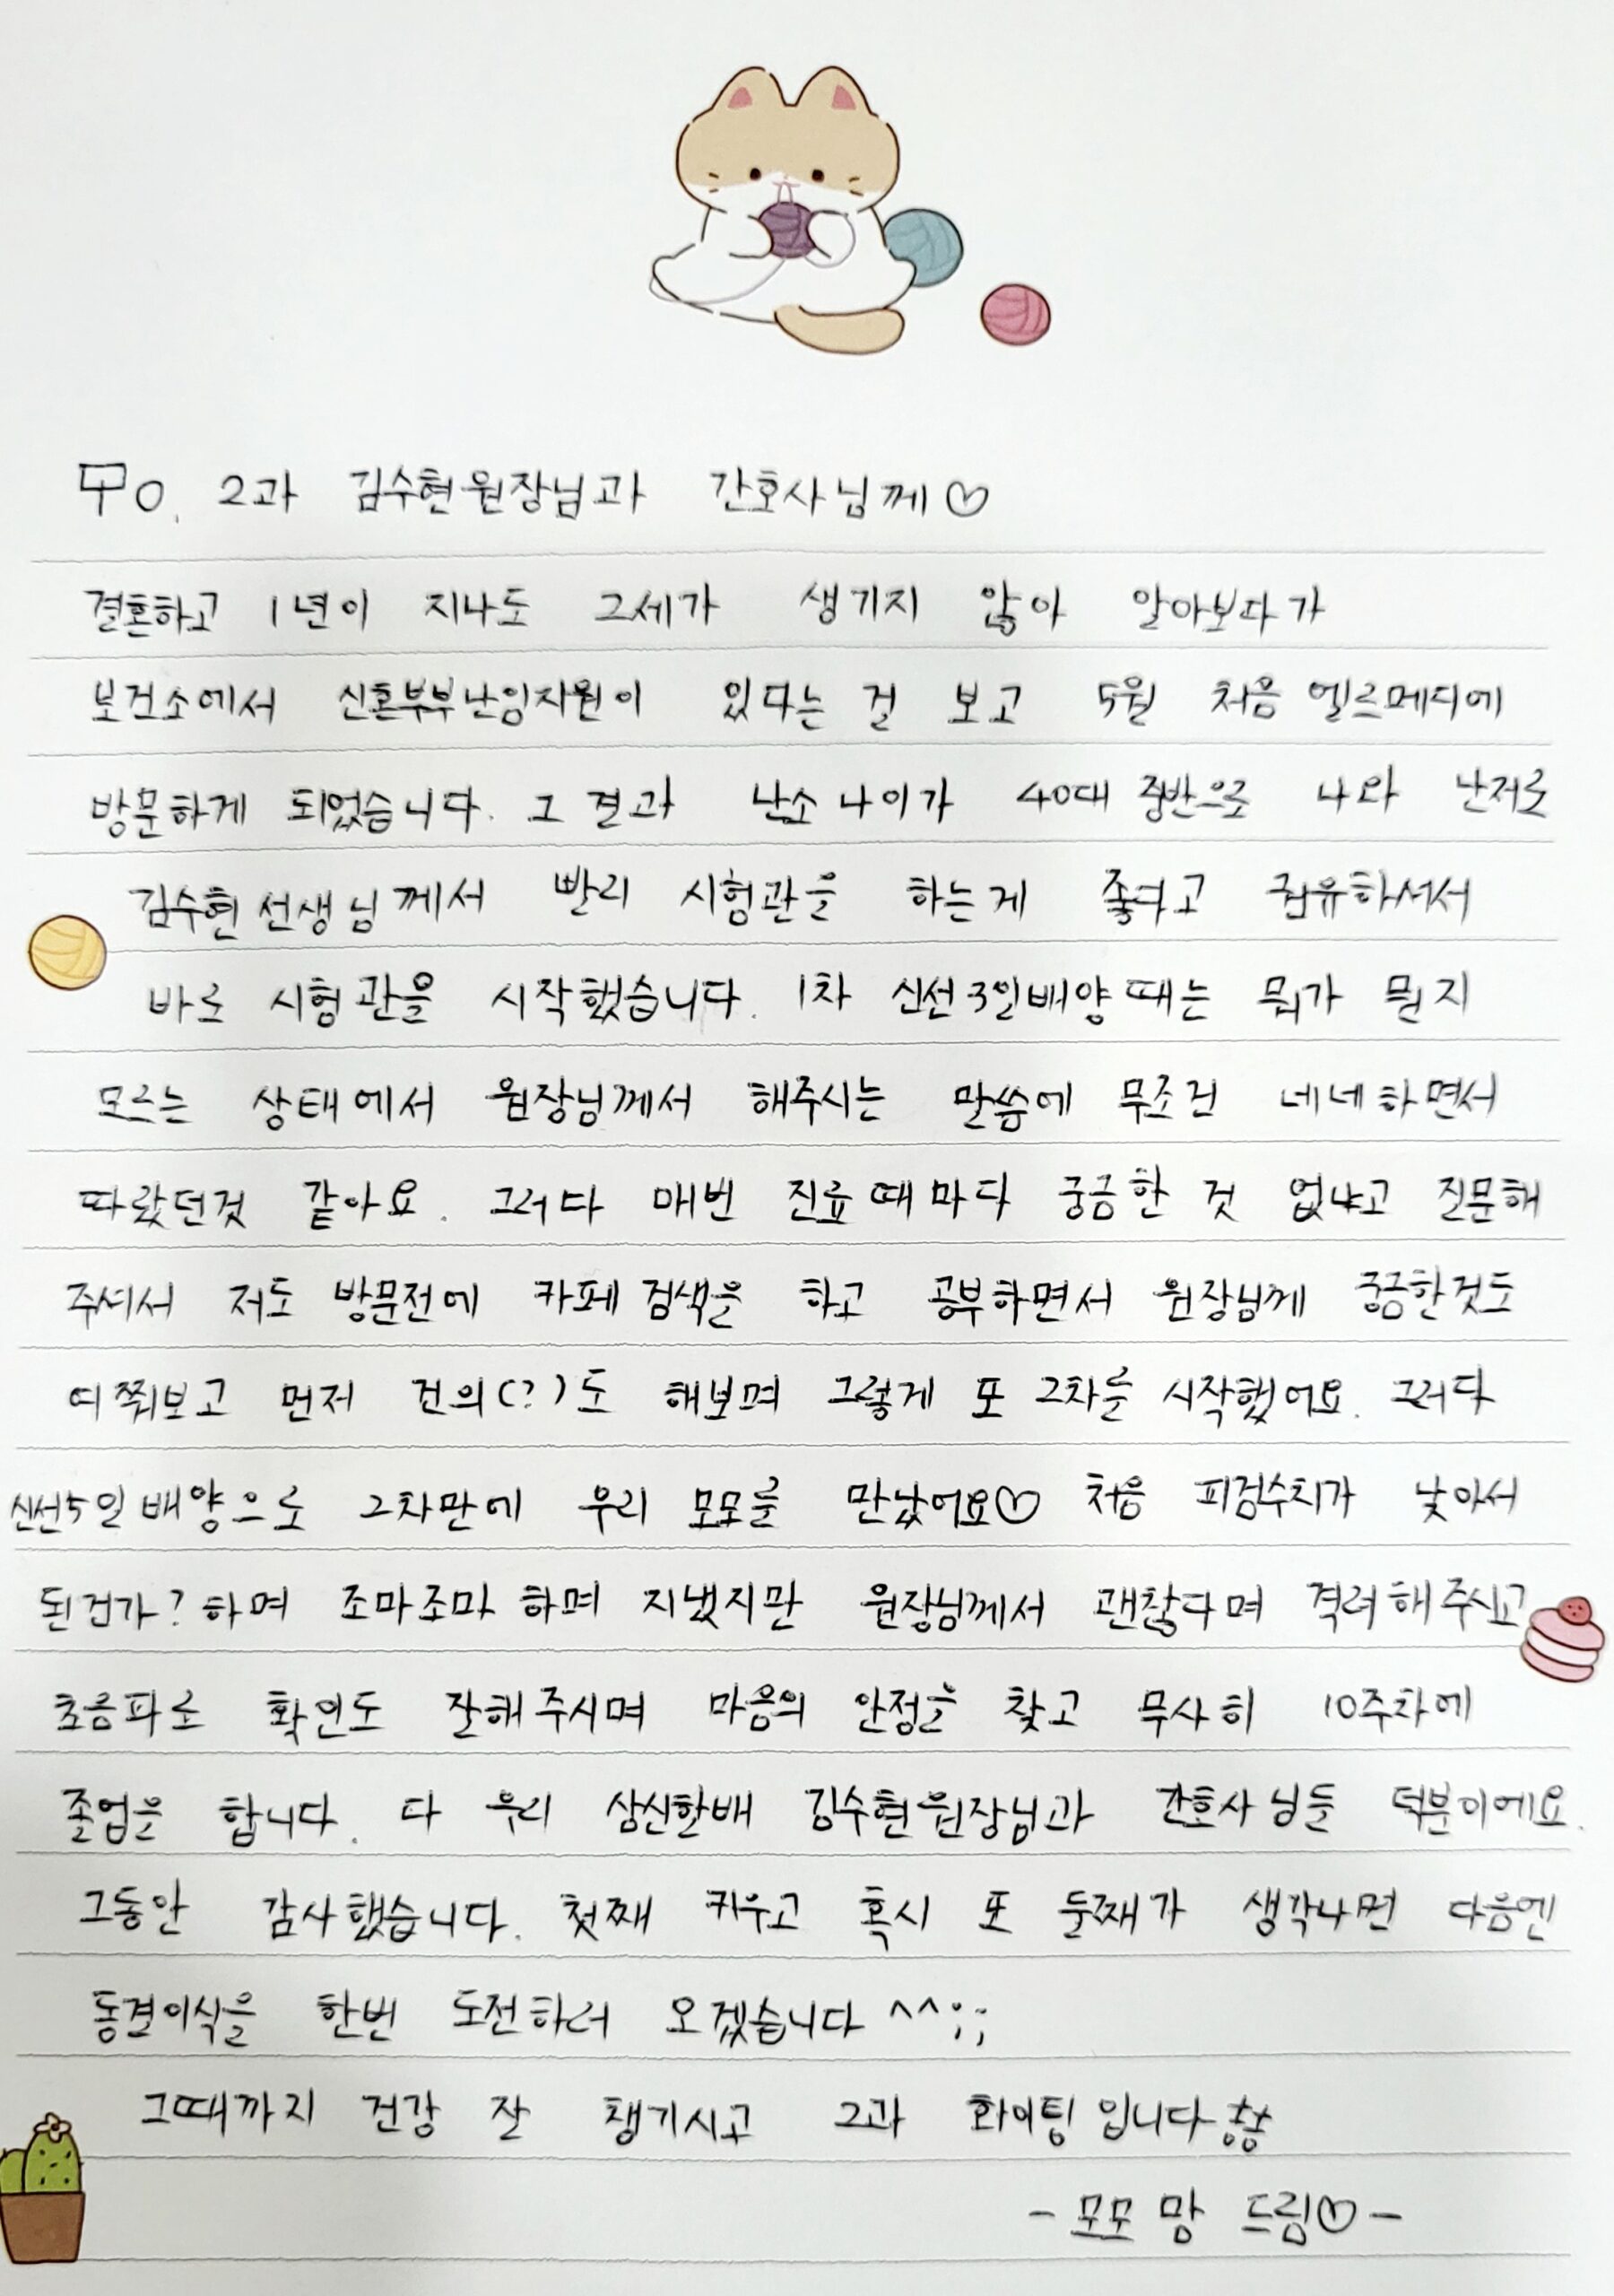 To. 2과 김수현원장님과 간호사님께♡
결혼하고 1년이 지나도 2세가 생기지 않아 알아보다가
보건소에서 신혼부부난임지원이 있다는 걸 보고 5월 처음 엘르메디에
방문하게 되었습니다. 그 결과 난소 나이가 40대 중반으로 나와 난저로
김수현선생님께서 빨리 시험관을 하는게 좋다고 권유하셔서
바로 시험관을 시작했습니다. 1차 신선3일배양때는 뭐가 뭔지
모르는 상태에서 원장님께서 해주시는 말씀에 무조건 네네하면서
따랐던것 같아요. 그러다 매번 진료때마다 궁금한 것 없냐고 질문해
주셔서 저도 방문전에 카페검색을 하고 공부하면서 원장님께 궁금한것도
여쭤보고 먼저 건의(?)도 해보며 그렇게 또 2차를 시작했어요. 그러다
신선5일배양으로 2차만에 우리 모모를 만났어요♡ 처음 피검수치가 낮아서
된건가? 하며 조마조마 하며 지냈지만 원장님께서 괜찮다며 격려해주시고
초음파로 확인도 잘해주시며 마음의 안정을 찾고 무사히 10주차에
졸업을 합니다. 다 우리 삼신할배 김수현원장님과 간호사님들 덕분이에요.
그동안 감사했습니다. 첫째 키우고 혹시 또 둘째가 생각나면 다음엔
동결이식을 한번 도전하러 오겠습니다 ^^;;
그때까지 건강 잘 챙기시고 2과 화이팅입니다
- 모모 맘 드림♡ -